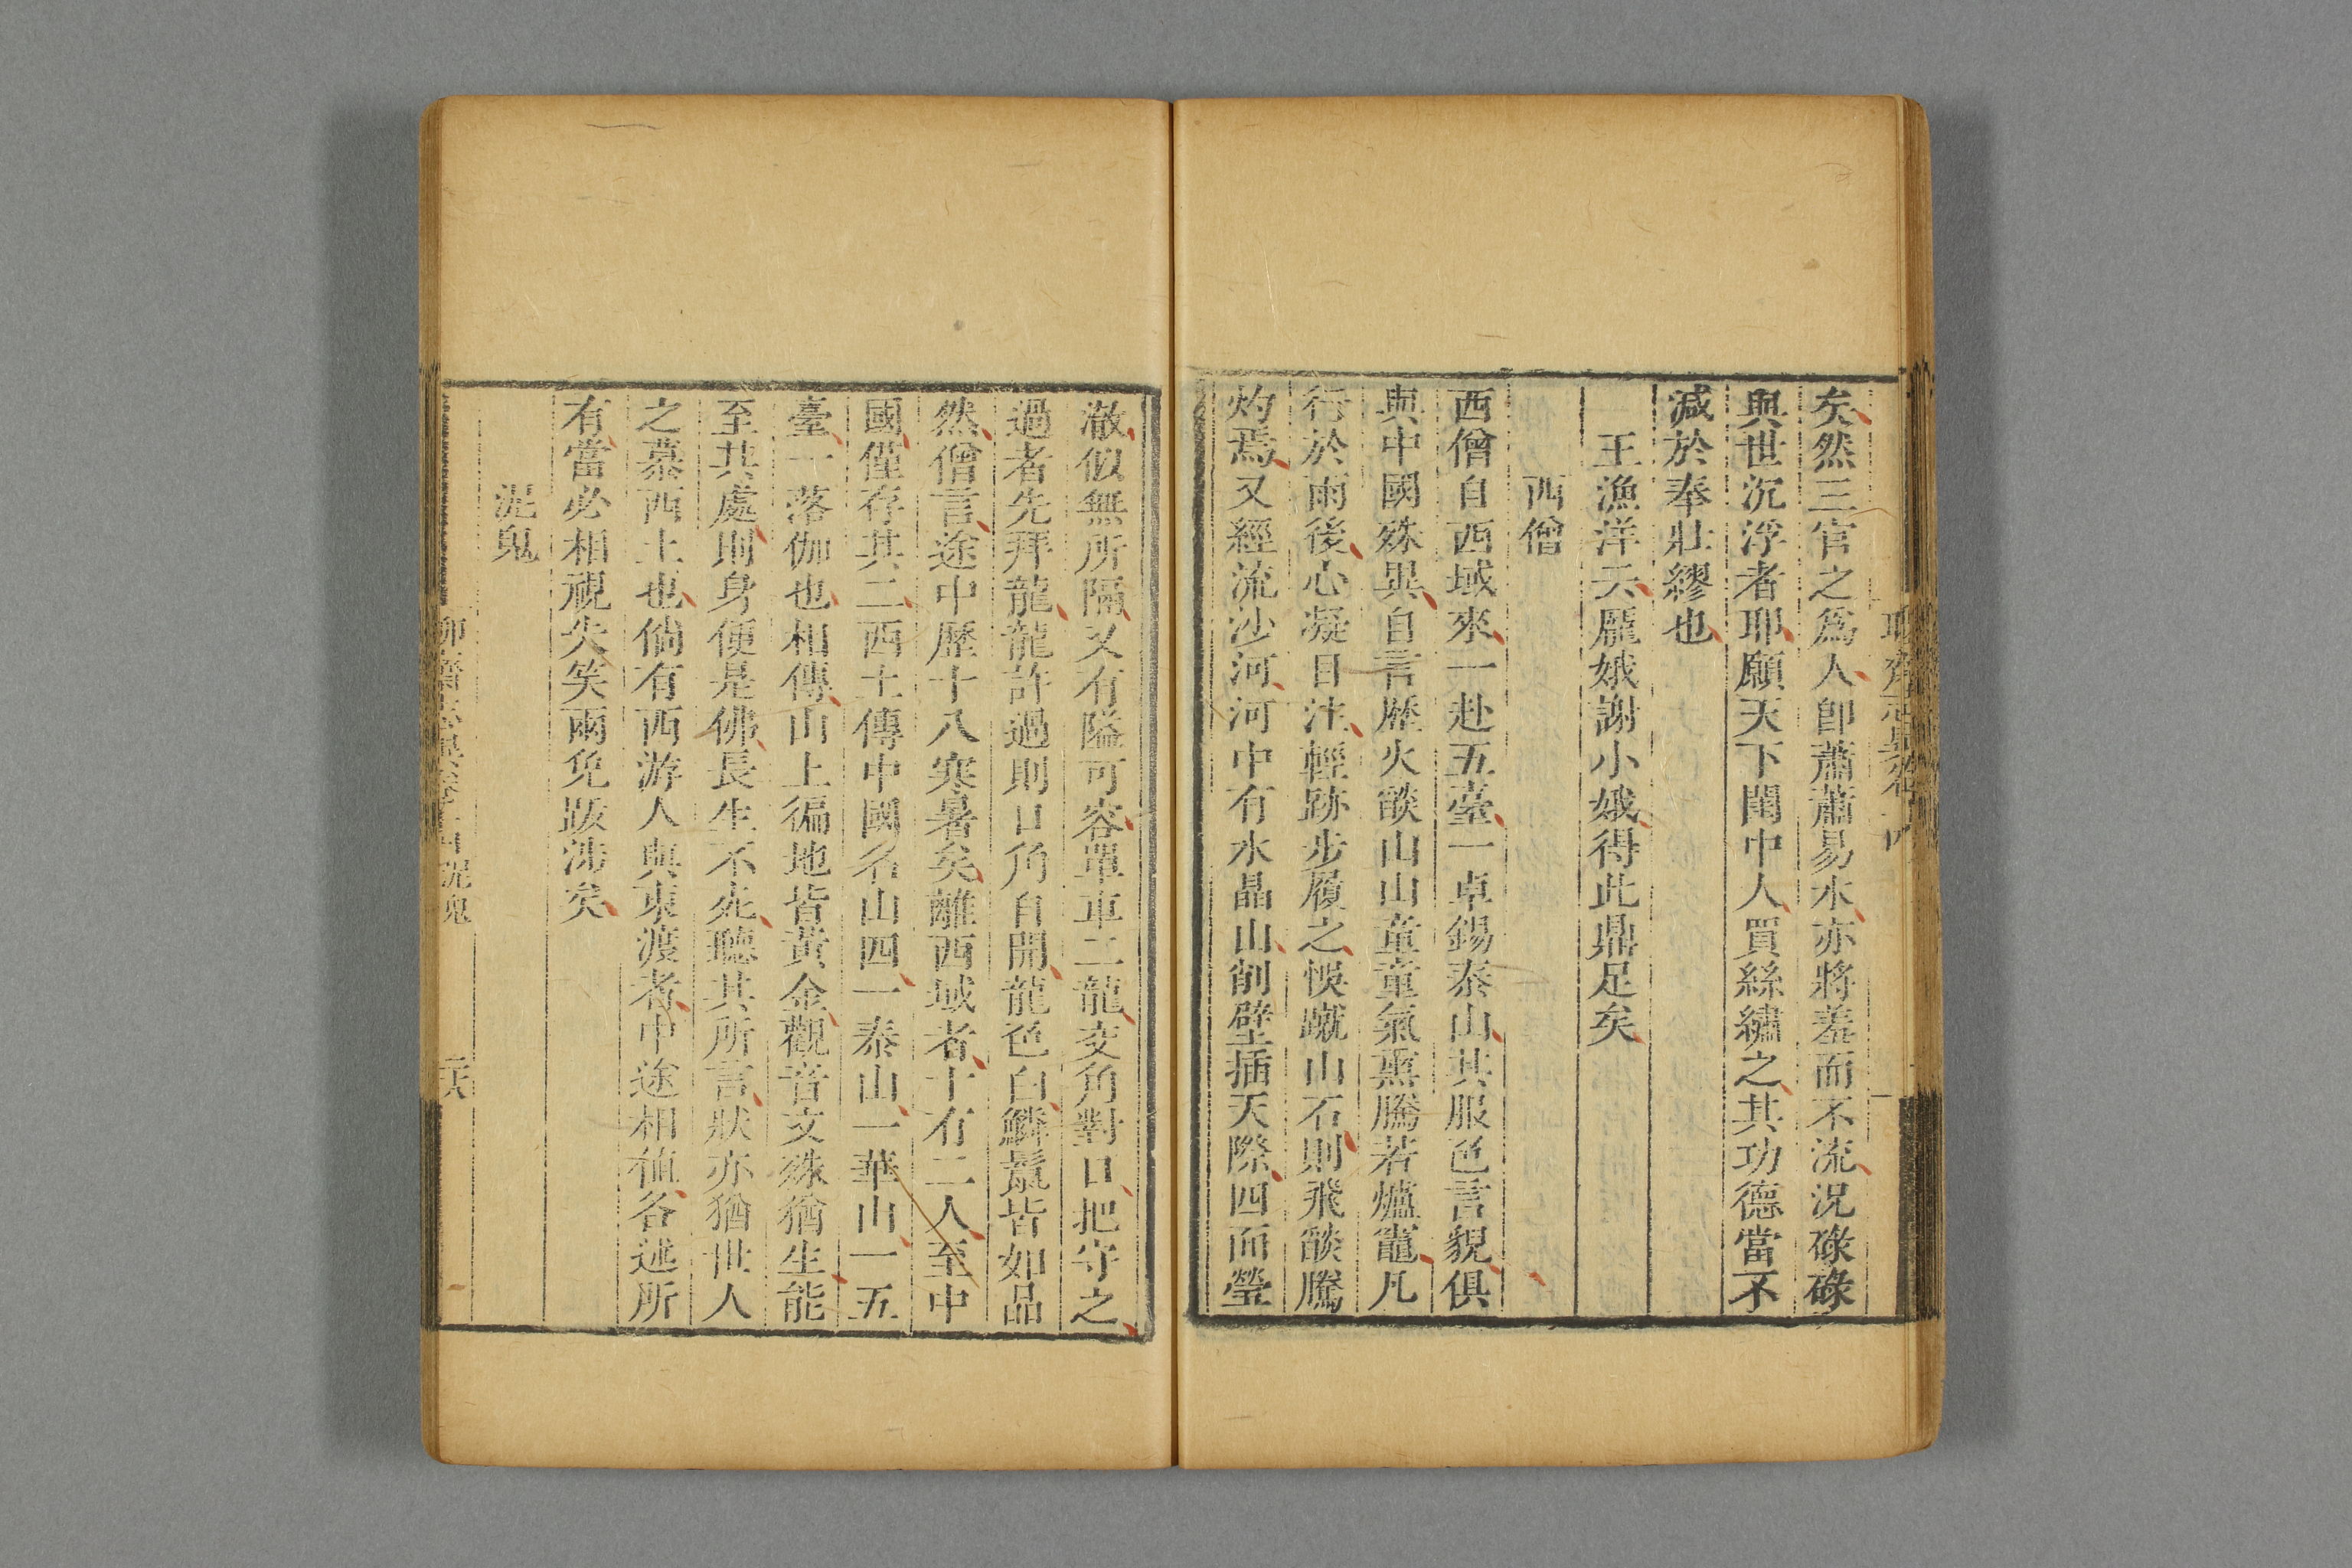 矣然三官之爲人卽蕭蕭易水亦將羞而不流況碌碌
與世沉浮者耶願天下閨中人買絲繡之其功德當不
減於奉壯繆也
王漁洋云龎娥謝小娥得此鼎足矣
西僧
西僧自西域來一赴五臺一卓錫泰山其服色言貌俱
與中國殊異自言歷火燄山山童童氣熏騰若爐竈凡
行於雨後心凝目注輕跡步履之悞蹴山石則飛燄騰
灼焉又經流沙河河中有水晶山削壁插天際四面瑩
澈似無所隔又有隘可容單車二龍交角對口把守之
過者先拜龍龍許過則口角自開龍色白鱗鬣皆如晶
然僧言途中歷十八寒暑矣離西域者十有二人至中
國僅存其二西土傳中國名山四一泰山一華山一五
臺一落伽也相傳山上徧地皆黃金觀音文殊猶生能
至其處則身便是佛長生不死聽其所言狀亦猶世人
之慕西土也倘有西游人與東渡者中途相值各述所
有當必相視失笑兩免跋涉矣
泥鬼
泥鬼